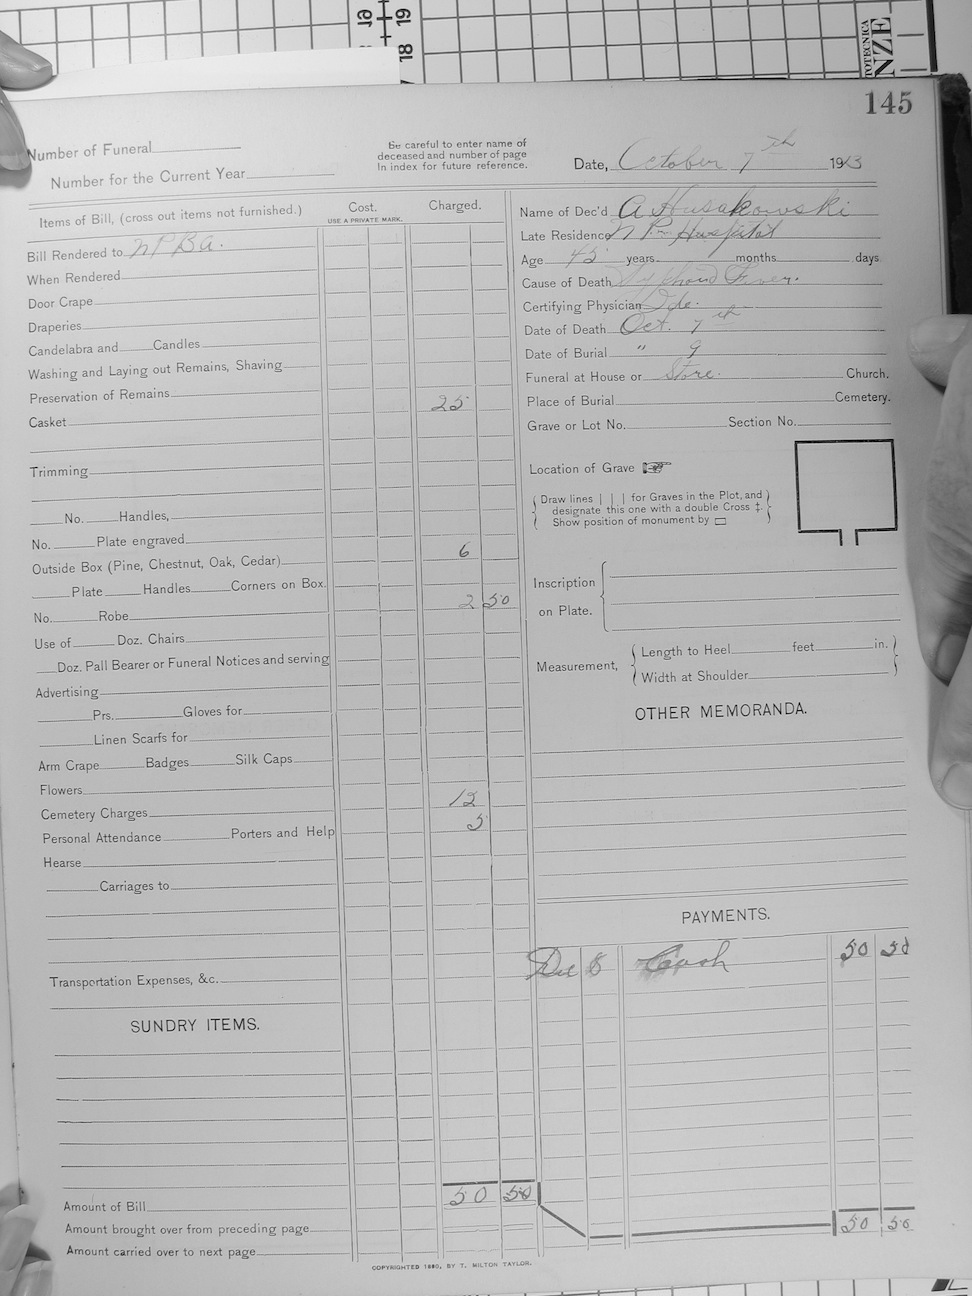 145
Number of Funeral
Be careful to enter name of
deceased and number of page
in index for future reference.
Number for the Current Year
Date, October 7th 1913
Items of Bill, (cross out items not furnished.)
Cost.
USE A PRIVATE MARK.
Charged.
Bill Rendered to NPBA.
When Rendered
Door Crape
Draperies
Candelabra and Candles
Washing and Laying out Remains, Shaving
Preservation of Remains
Casket 25
Trimming
No. Handles,
No. Plate engraved
Outside Box (Pine, Chestnut, Oak, Cedar) 6
Plate Handles Corners on Box.
No. Robe 2 50
Use of Doz. Chairs
Doz. Pall Bearer or Funeral Notices and serving
Advertising
Prs. Gloves for
Linen Scarfs for
Arm Crape Badges Silk Caps
Flowers
Cemetery Charges 12
Personal Attendance Porters and Help 5
Hearse
Carriages to
Transportation Expenses, &c.
SUNDRY ITEMS.
Amount of Bill 50 50
Amount brought over from preceding page
Amount carried over to next page
Name of Dec'd A Husakowski
Late Residence N P Hospital
Age 45 years months days
Cause of Death Typhoid Fever.
Certifying Physician Ide.
Date of Death Oct. 7th
Date of Burial " 9
Funeral at House or Store. Church.
Place of Burial Cemetery.
Grave or Lot No. Section No.
Location of Grave
Draw lines | | | for Graves in the Plot, and
designate this one with a double Cross ‡.
Show position of monument by ▭
Inscription
on Plate.
Measurement,
Length to Heel feet in.
Width at Shoulder
OTHER MEMORANDA.
PAYMENTS.
Dec 8 Cash 50 50
50 50
COPYRIGHTED 1880, BY T. MILTON TAYLOR.